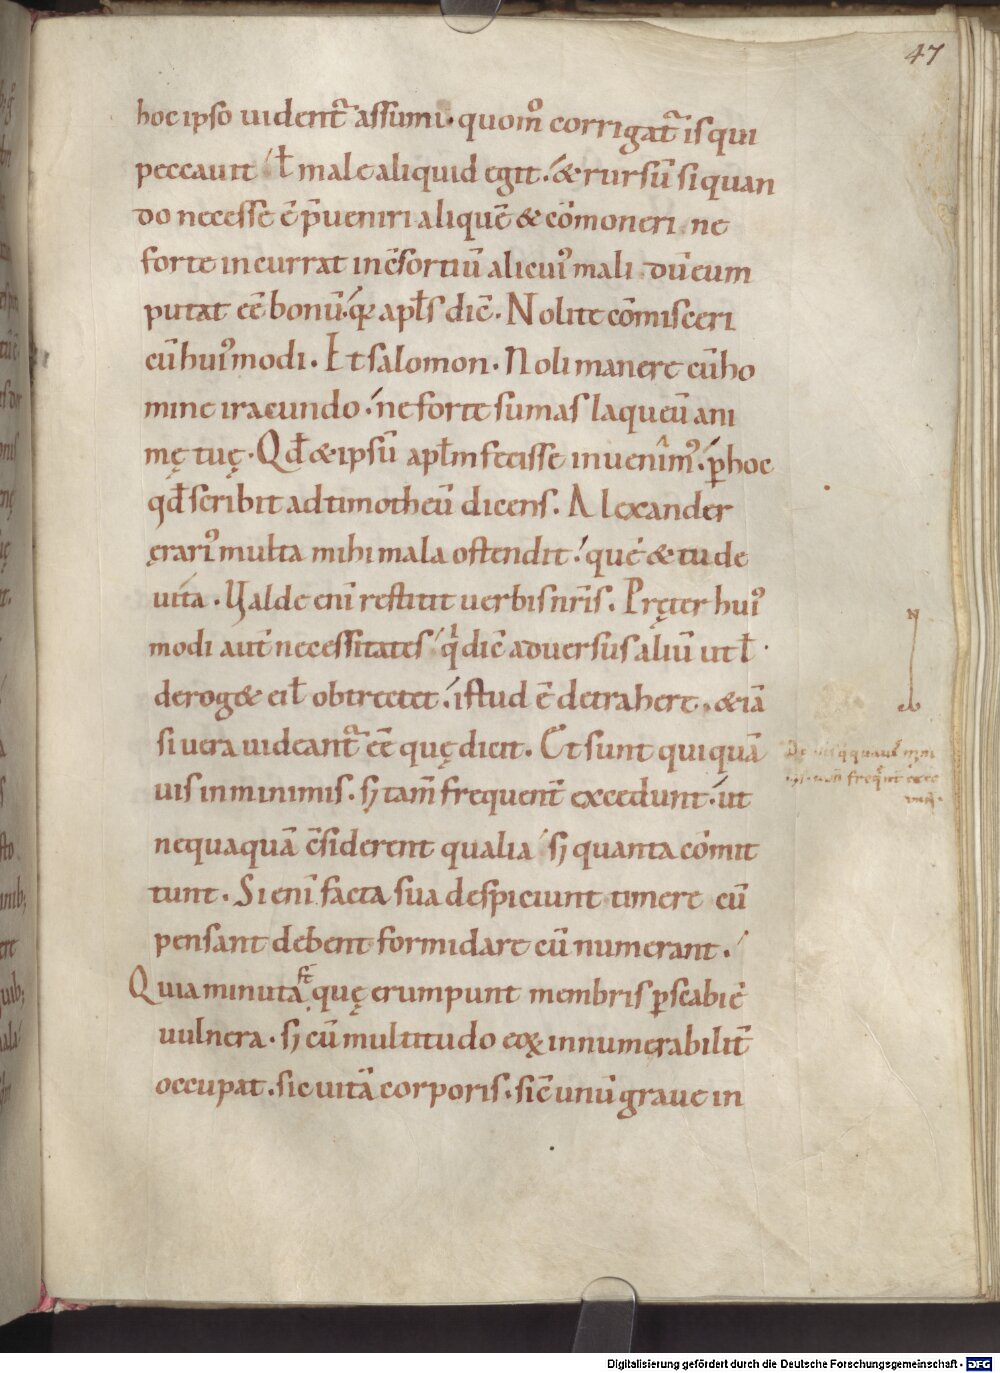 47
hoc ipso uident᷑ assumi. quom̊ corrigat᷑ is qui
peccauit ł male aliquid egit. & rursū si quan
do necesse ē p̄ueniri aliquē & cōmoneri. ne
forte incurrat in c̄sortiū alicui᷒ mali. dū eum
putat eē bonū. qꝛ apłs dic̄. Nolite cōmisceri
cū hui᷒modi. Et salomon. Noli manere cū ho
mine iracundo. ne forte sumas laqueū ani
mę tuę. Qđ & ipsū apłm fecisse inuenim᷒. ꝑ hoc
qđ scribit ad timotheū dicens. Alexander
ęrari᷒ multa mihi mala ostendit. quē & tu de
uita. Valde eni restitit uerbis nr̄is. Pręter hui᷒
modi aut̄ necessitates qͥ dic̄ aduersus aliū ut ł
derog& ei ł obtrectet. istud ē detrahere. & iā
si uera uideant᷑ eē quę dicit. Et sunt qui quā
uis in minimis. sꝫ tam̄ frequent̄ excedunt. ut
nequaquā c̄siderent qualia sꝫ quanta cōmit
tunt. Si eni facta sua despiciunt timere cū
pensant debent formidare cū numerant.
Quia minuta st̄ quę erumpunt membris ꝑ scabiē
uulnera. sꝫ cū multitudo eoꝝ innumerabilit̄
occupat. sic uitā corporis. sic̄ unū graue in
N
Digitalisierung gefördert durch die Deutsche Forschungsgemeinschaft - DFG